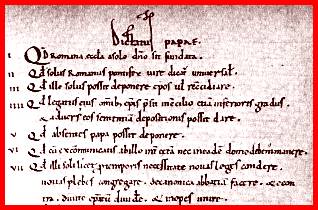 Dictatus papae.
I Qd Romana eccla a solo dno sit fundata.
II Qd solus Romanus pontifex iure dicat universal.
III Qd ille solus possit deponere epos ul reconciliare.
IIII Qd legatus eius omib epis presit in concilio etia inferioris gradus
& adversus eos sententia depositionis possit dare.
V Qd absentes papa possit deponere.
VI Qd cu excommunicatis ab illo int cetera nec in eade domo debem manere.
VII Qd illi soli licet p temporis necessitate novas leges condere
novas plebes congregare. de canonica abbatia facere. & econ
tra. divite episcopatu divide. & inopes unire.